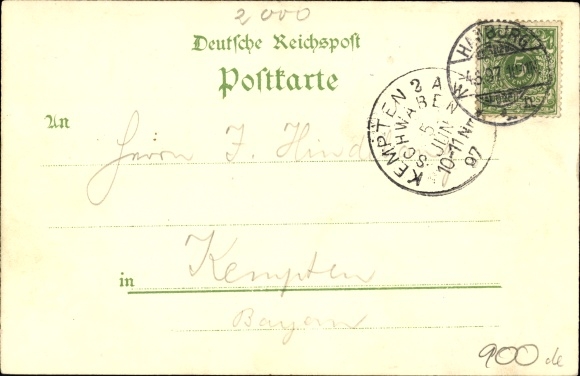 2000
Deutsche Reichspost
Postkarte
An
Herrn F.
in Kempten
Bayern
HAMBURG
KEMPTEN 2 A
SCHWABEN
5
JUN
10-11 Nm
97
900